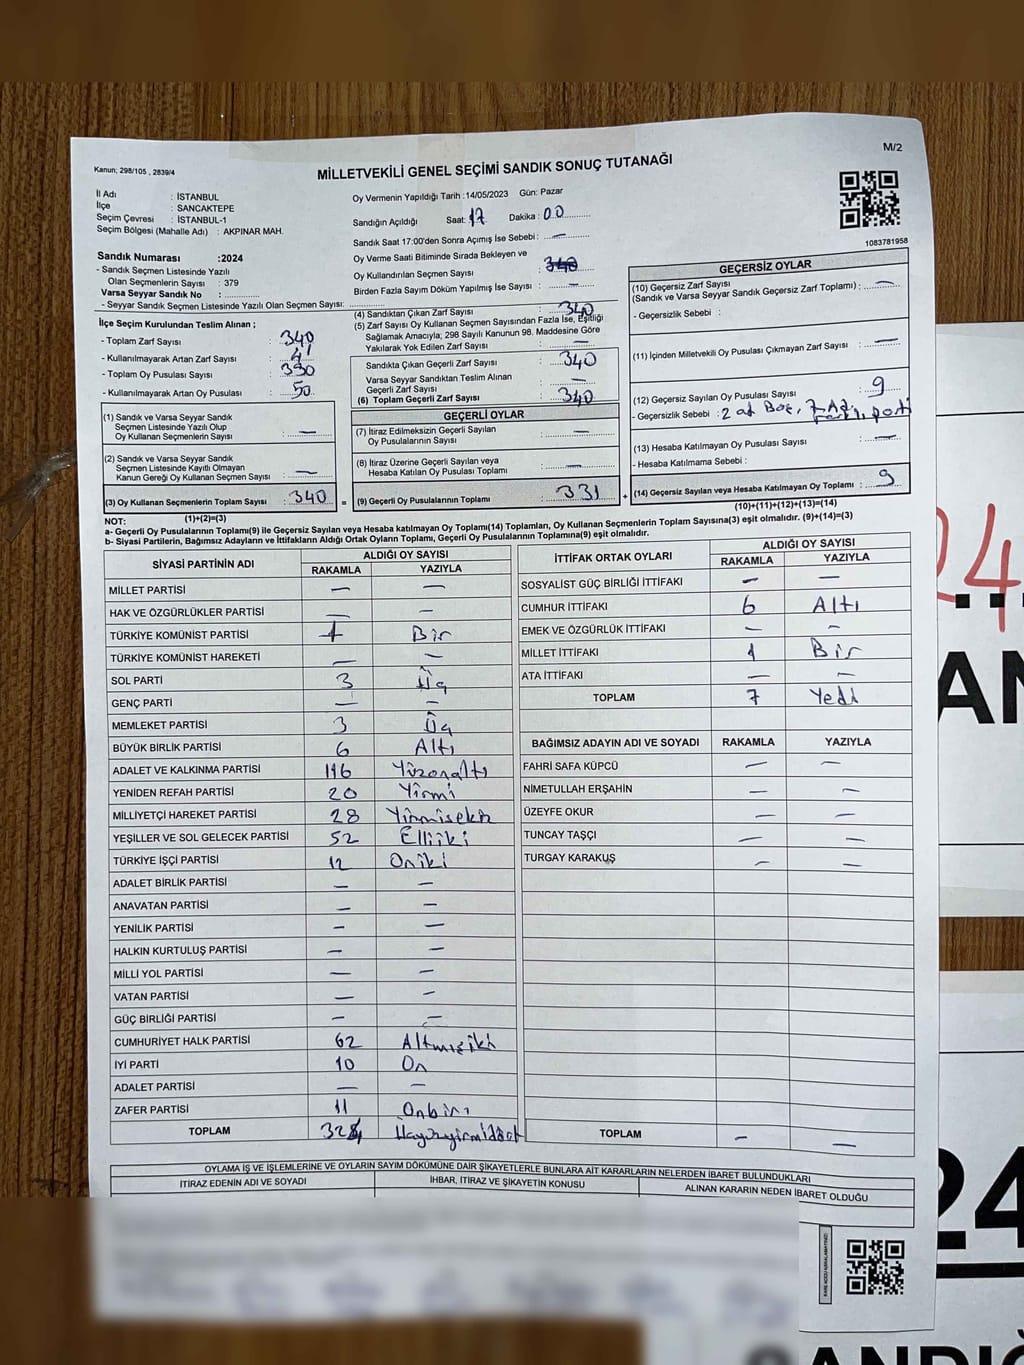 M/2
Kanun; 298/105 , 2839/4
MİLLETVEKİLİ GENEL SEÇİMİ SANDIK SONUÇ TUTANAĞI
İl Adı : İSTANBUL
İlçe : SANCAKTEPE
Seçim Çevresi : İSTANBUL-1
Seçim Bölgesi (Mahalle Adı) : AKPINAR MAH.
Sandık Numarası :2024
- Sandık Seçmen Listesinde Yazılı
Olan Seçmenlerin Sayısı : 379
Varsa Seyyar Sandık No :
- Seyyar Sandık Seçmen Listesinde Yazılı Olan Seçmen Sayısı:
Oy Vermenin Yapıldığı Tarih :14/05/2023 Gün: Pazar
Sandığın Açıldığı Saat: 17 Dakika : 00
Sandık Saat 17:00'den Sonra Açımış İse Sebebi : —
Oy Verme Saati Bitiminde Sırada Bekleyen ve
Oy Kullandırılan Seçmen Sayısı :
Birden Fazla Sayım Döküm Yapılmış İse Sayısı : —
1083781958
İlçe Seçim Kurulundan Teslim Alınan ;
- Toplam Zarf Sayısı : 340
- Kullanılmayarak Artan Zarf Sayısı :
- Toplam Oy Pusulası Sayısı :
- Kullanılmayarak Artan Oy Pusulası : 50
(1) Sandık ve Varsa Seyyar Sandık
Seçmen Listesinde Yazılı Olup
Oy Kullanan Seçmenlerin Sayısı : —
(2) Sandık ve Varsa Seyyar Sandık
Seçmen Listesinde Kayıtlı Olmayan
Kanun Gereği Oy Kullanan Seçmen Sayısı : —
(3) Oy Kullanan Seçmenlerin Toplam Sayısı : 340 =
(1)+(2)=(3)
(4) Sandıktan Çıkan Zarf Sayısı : 340
(5) Zarf Sayısı Oy Kullanan Seçmen Sayısından Fazla İse, Eşitliği
Sağlamak Amacıyla; 298 Sayılı Kanunun 98. Maddesine Göre
Yakılarak Yok Edilen Zarf Sayısı : —
Sandıkta Çıkan Geçerli Zarf Sayısı : 340
Varsa Seyyar Sandıktan Teslim Alınan
Geçerli Zarf Sayısı : —
(6) Toplam Geçerli Zarf Sayısı : 340
GEÇERLİ OYLAR
(7) İtiraz Edilmeksizin Geçerli Sayılan
Oy Pusulalarının Sayısı : —
(8) İtiraz Üzerine Geçerli Sayılan veya
Hesaba Katılan Oy Pusulası Toplamı : —
(9) Geçerli Oy Pusulalarının Toplamı : 331 +
GEÇERSİZ OYLAR
(10) Geçersiz Zarf Sayısı
(Sandık ve Varsa Seyyar Sandık Geçersiz Zarf Toplamı) : —
- Geçersizlik Sebebi :
(11) İçinden Milletvekili Oy Pusulası Çıkmayan Zarf Sayısı : —
(12) Geçersiz Sayılan Oy Pusulası Sayısı : 9
- Geçersizlik Sebebi : 2 ad Boş, 7 Ad.
(13) Hesaba Katılmayan Oy Pusulası Sayısı : —
- Hesaba Katılmama Sebebi :
(14) Geçersiz Sayılan veya Hesaba Katılmayan Oy Toplamı : 9
(10)+(11)+(12)+(13)=(14)
NOT:
a- Geçerli Oy Pusulalarının Toplamı(9) ile Geçersiz Sayılan veya Hesaba katılmayan Oy Toplamı(14) Toplamları, Oy Kullanan Seçmenlerin Toplam Sayısına(3) eşit olmalıdır. (9)+(14)=(3)
b- Siyasi Partilerin, Bağımsız Adayların ve İttifakların Aldığı Ortak Oyların Toplamı, Geçerli Oy Pusulalarının Toplamına(9) eşit olmalıdır.
SİYASİ PARTİNİN ADI ALDIĞI OY SAYISI
RAKAMLA YAZIYLA
MİLLET PARTİSİ — —
HAK VE ÖZGÜRLÜKLER PARTİSİ — —
TÜRKİYE KOMÜNİST PARTİSİ 1 Bir
TÜRKİYE KOMÜNİST HAREKETİ — —
SOL PARTİ 3 Üç
GENÇ PARTİ — —
MEMLEKET PARTİSİ 3 Üç
BÜYÜK BİRLİK PARTİSİ 6 Altı
ADALET VE KALKINMA PARTİSİ 116 Yüzonaltı
YENİDEN REFAH PARTİSİ 20 Yirmi
MİLLİYETÇİ HAREKET PARTİSİ 28 Yirmisekiz
YEŞİLLER VE SOL GELECEK PARTİSİ 52 Elliiki
TÜRKİYE İŞÇİ PARTİSİ 12 Oniki
ADALET BİRLİK PARTİSİ — —
ANAVATAN PARTİSİ — —
YENİLİK PARTİSİ — —
HALKIN KURTULUŞ PARTİSİ — —
MİLLİ YOL PARTİSİ — —
VATAN PARTİSİ — —
GÜÇ BİRLİĞİ PARTİSİ — —
CUMHURİYET HALK PARTİSİ 62 Altmışiki
İYİ PARTİ 10 On
ADALET PARTİSİ — —
ZAFER PARTİSİ 11 Onbir
TOPLAM 324
İTTİFAK ORTAK OYLARI ALDIĞI OY SAYISI
RAKAMLA YAZIYLA
SOSYALİST GÜÇ BİRLİĞİ İTTİFAKI — —
CUMHUR İTTİFAKI 6 Altı
EMEK VE ÖZGÜRLÜK İTTİFAKI — —
MİLLET İTTİFAKI 1 Bir
ATA İTTİFAKI — —
TOPLAM 7 Yedi
BAĞIMSIZ ADAYIN ADI VE SOYADI RAKAMLA YAZIYLA
FAHRİ SAFA KÜPCÜ — —
NİMETULLAH ERŞAHİN — —
ÜZEYFE OKUR — —
TUNCAY TAŞÇI — —
TURGAY KARAKUŞ — —
TOPLAM — —
OYLAMA İŞ VE İŞLEMLERİNE VE OYLARIN SAYIM DÖKÜMÜNE DAİR ŞİKAYETLERLE BUNLARA AİT KARARLARIN NELERDEN İBARET BULUNDUKLARI
İTİRAZ EDENİN ADI VE SOYADI İHBAR, İTİRAZ VE ŞİKAYETİN KONUSU ALINAN KARARIN NEDEN İBARET OLDUĞU
24